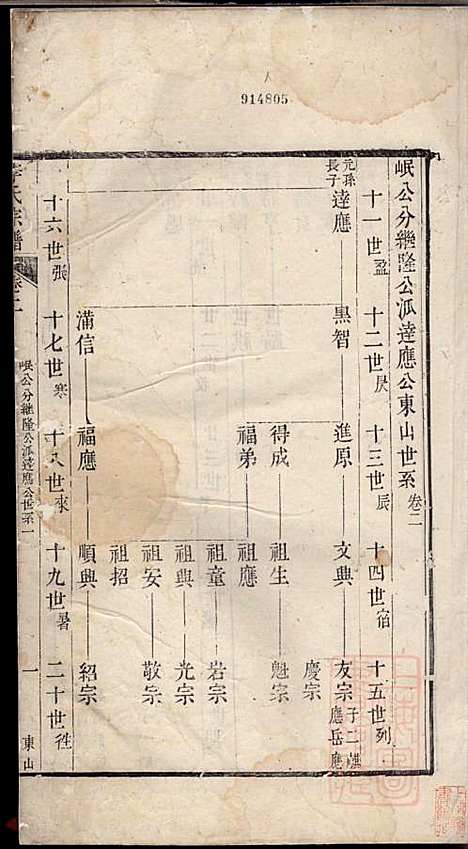 914805
岷公分繼隆公派達應公東山世系 卷二
十一世盈 十二世昃 十三世辰 十四世宿 十五世列
元孫長子 達應 黑智 進原 文興 友宗 子二 應岳 應
慶宗
得成 祖生 魁宗
福弟 祖應
祖童 岩宗
祖興 光宗
祖安 敬宗
祖招
滿信 福應 順興 紹宗
十六世張 十七世寒 十八世來 十九世暑 二十世往
氏宗譜 卷二 岷公分繼隆公派達應公世系一 一 東山